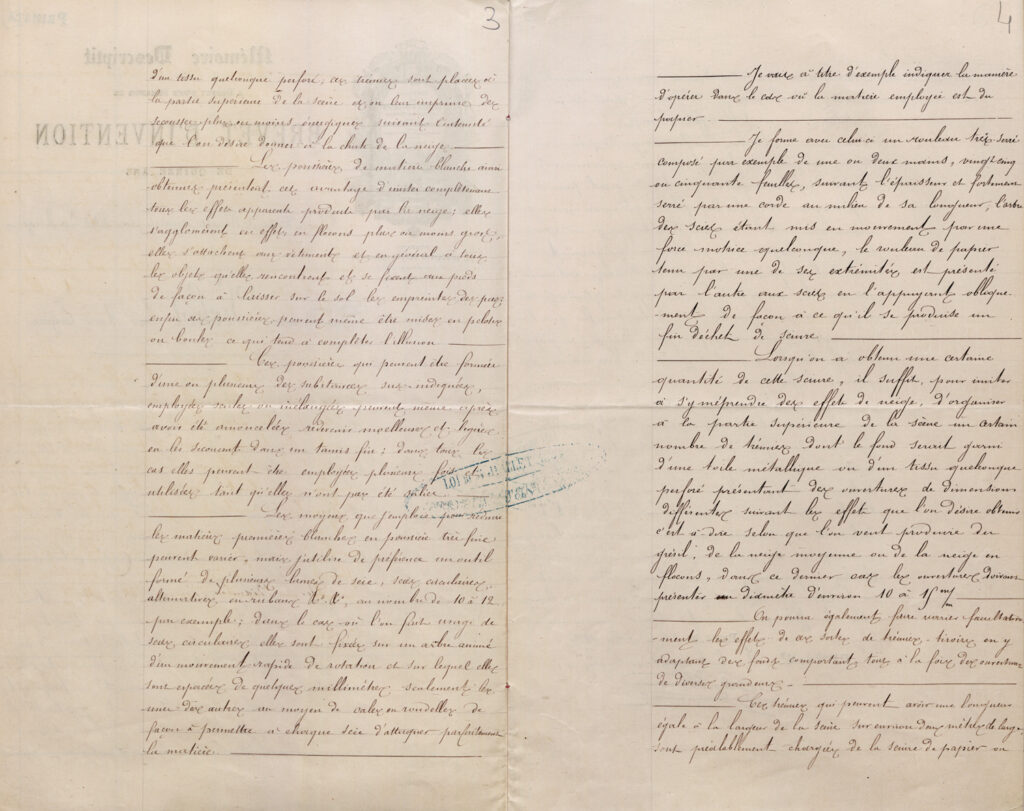 3
d'un tissu quelconque perforé; ces trémies sont placées à
la partie supérieure de la scène et on leur imprime des
secousses plus ou moins énergiques suivant l'intensité
que l'on désire donner à la chute de la neige.
Les poussières de matière blanche ainsi
obtenues présentent cet avantage d'imiter complètement
tous les effets apparents produits par la neige; elles
s'agglomèrent en effet en flocons plus ou moins gros,
elles s'attachent aux vêtements et en général à tous
les objets qu'elles rencontrent et se fixent aux pieds
de façon à laisser sur le sol les empreintes des pas
enfin ces poussières peuvent même être mises en pelotes
ou boules ce qui tend à compléter l'illusion
Ces poussières qui peuvent être formées
d'une ou plusieurs des substances sus-indiquées,
employées seules ou mélangées peuvent même après
avoir été amoncelées redevenir moelleuses et légères
en les secouant dans un tamis fin; dans tous les
cas elles peuvent être employées plusieurs fois et
utilisées tant qu'elles n'ont pas été salies.
Les moyens que j'emploie pour réduire
les matières premières blanches en poussière très fine
peuvent varier, mais j'utilise de préférence un outil
formé de plusieurs lames de scie, scies circulaires,
alternatives, en rubans &a. &a., au nombre de 10 à 12
par exemple; dans le cas où l'on fait usage de
scies circulaires elles sont fixées sur un arbre animé
d'un mouvement rapide de rotation et sur lequel elles
sont espacées de quelques millimètres seulement les
unes des autres au moyen de cales en rondelles de
façon à permettre à chaque scie d'attaquer parfaitement
la matière.
4
Je vais à titre d'exemple indiquer la manière
d'opérer dans le cas où la matière employée est du
papier
Je forme avec celui-ci un rouleau très serré
composé par exemple de une ou deux mains, vingt-cinq
ou cinquante feuilles, suivant l'épaisseur et fortement
serré par une corde au milieu de sa longueur, l'arbre
des scies étant mis en mouvement par une
force motrice quelconque, le rouleau de papier
tenu par une de ses extrémités est présenté
par l'autre aux scies en l'appuyant oblique-
ment de façon à ce qu'il se produise un
fin déchet de sciure
Lorsqu'on a obtenu une certaine
quantité de cette sciure, il suffit, pour imiter
à s'y méprendre des effets de neige, d'organiser
à la partie supérieure de la scène un certain
nombre de trémies dont le fond serait garni
d'une toile métallique ou d'un tissu quelconque
perforé présentant des ouvertures de dimensions
différentes suivant les effets que l'on désire obtenir
c'est-à-dire selon que l'on veut produire du
grésil, de la neige moyenne ou de la neige en
flocons, dans ce dernier cas les ouvertures doivent
présenter un diamètre d'environ 10 à 15 m/m
On pourra également faire varier facultative-
-ment les effets de ces sortes de trémies-tiroirs en y
adaptant des fonds comportant tous à la fois des ouvertures
de diverses grandeurs.
Ces trémies qui peuvent avoir une longueur
égale à la largeur de la scène sur environ deux mètres de large
sont préalablement chargées de la sciure de papier ou